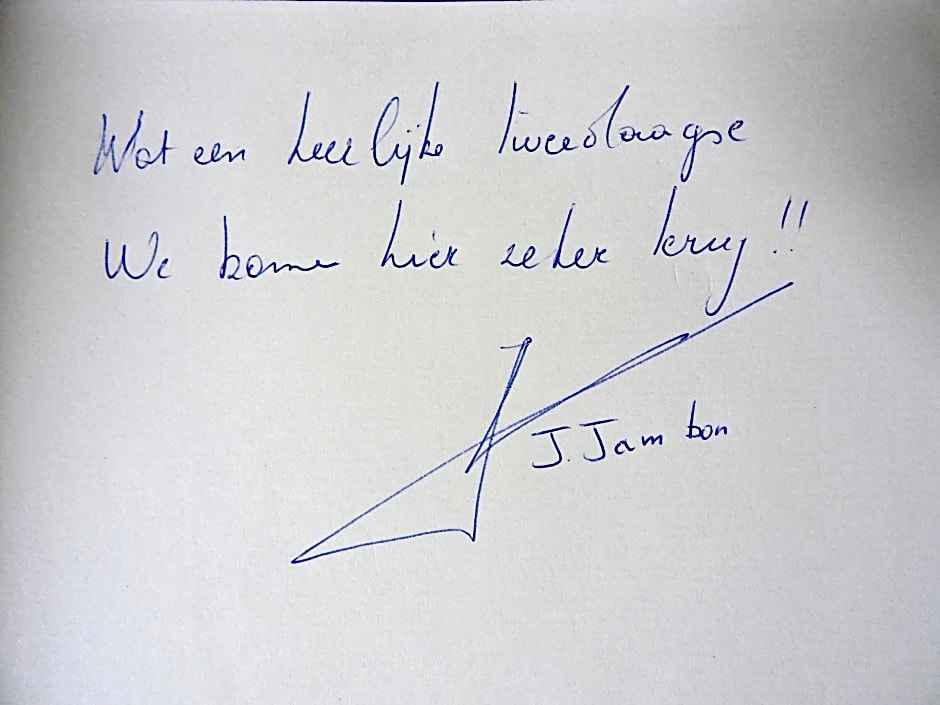 Wat een heerlijke tweedaagse
We komen hier zeker terug!!
J. Jambon